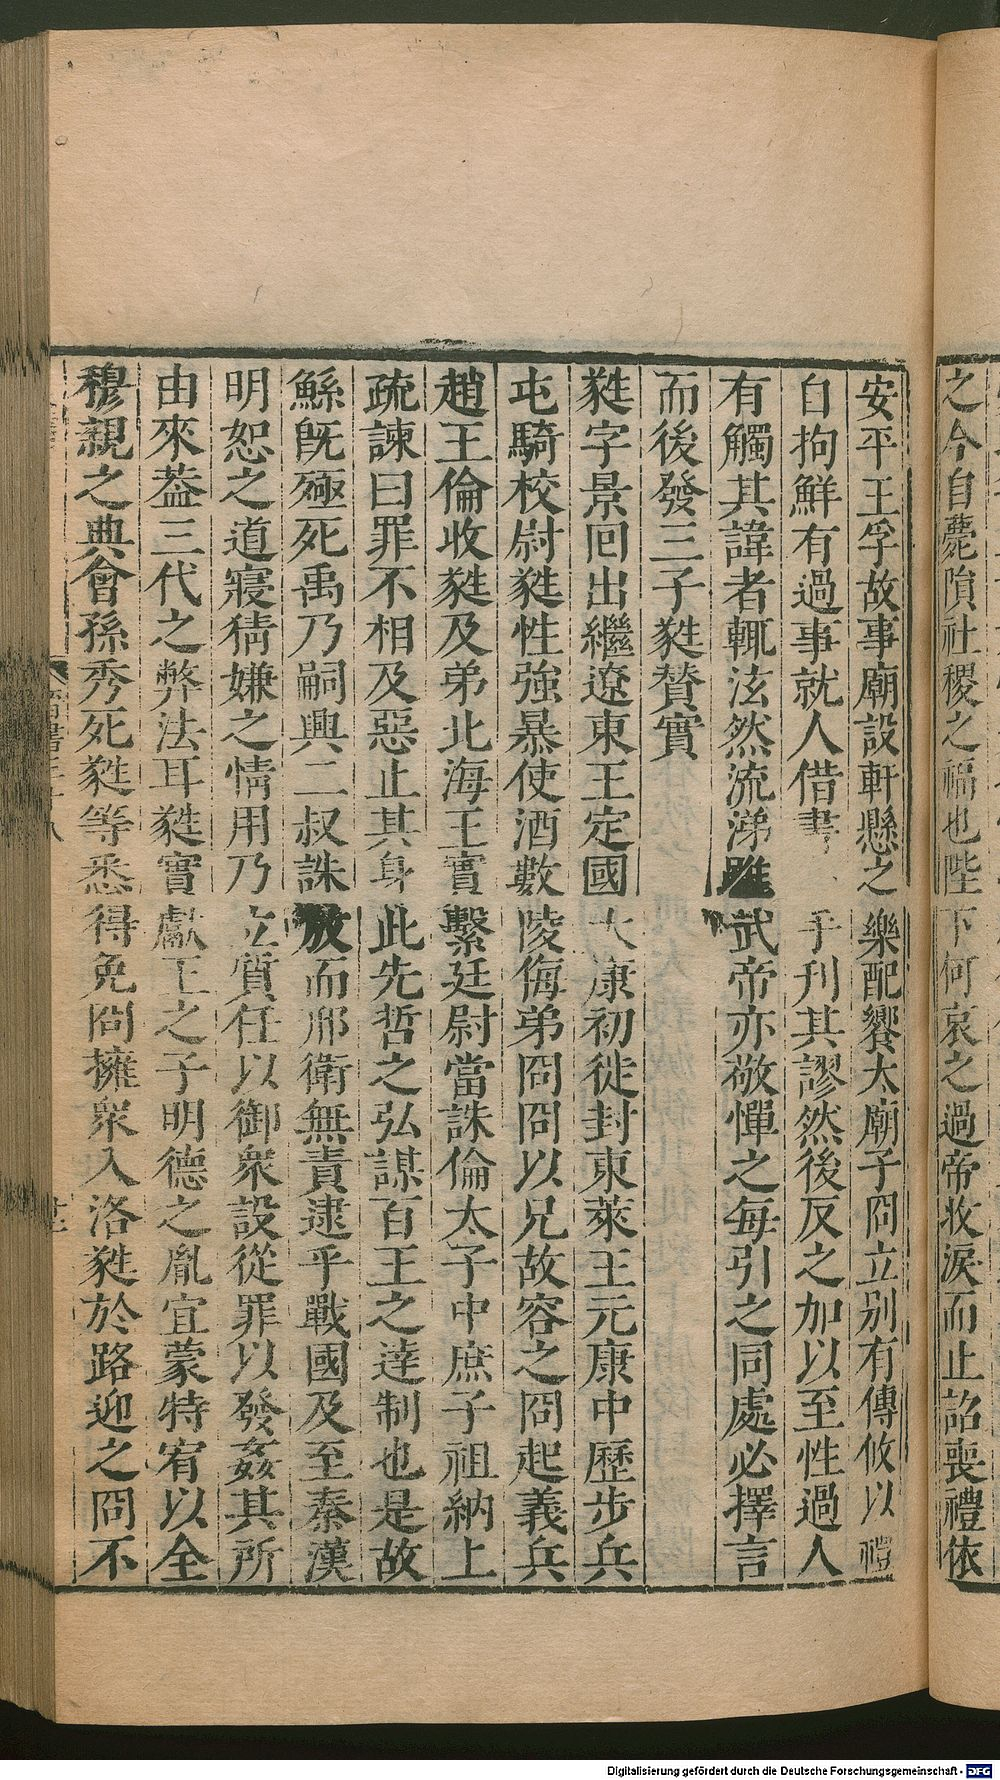 之今自薨隕社稷之福也陛下何哀之過帝收淚而止詔喪禮依
安平王孚故事廟設軒懸之樂配饗太廟子冏立别有傳攸以禮
自拘鮮有過事就人借書手刊其謬然後反之加以至性過人
有觸其諱者輒泫然流涕雖武帝亦敬憚之每引之同處必擇言
而後發三子蕤贊實
蕤字景回出繼遼東王定國太康初徙封東萊王元康中歷步兵
屯騎校尉蕤性強暴使酒數陵侮弟冏冏以兄故容之冏起義兵
趙王倫收蕤及弟北海王實繫廷尉當誅倫太子中庶子祖納上
疏諫曰罪不相及惡止其身此先哲之弘謀百王之達制也是故
鯀旣殛死禹乃嗣興二叔誅放而邢衛無責逮乎戰國及至秦漢
明恕之道寢猜嫌之情用乃立質任以御衆設從罪以發姦其所
由來葢三代之弊法耳蕤實獻王之子明德之胤宜蒙特宥以全
穆親之典會孫秀死蕤等悉得免冏擁衆入洛蕤於路迎之冏不
Digitalisierung gefördert durch die Deutsche Forschungsgemeinschaft - DFG